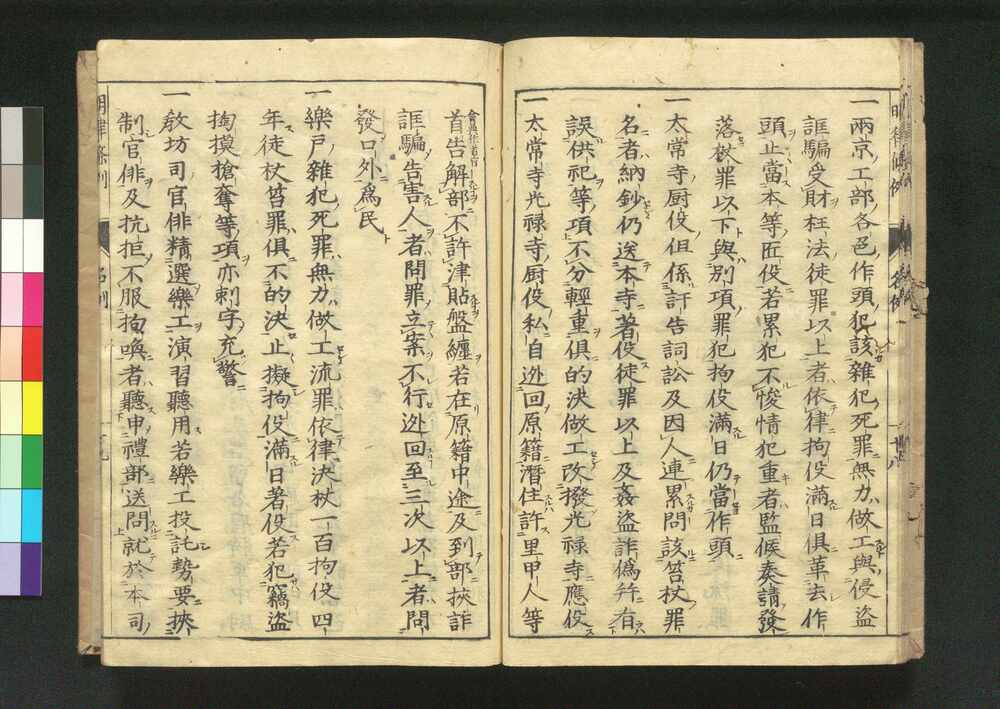 一兩京工部各色作頭犯該雜犯死罪無力做工與侵盜
誆騙受財枉法徒罪以上者依律拘役滿日俱革去作
頭止當本等匠役若累犯不悛情犯重者監候奏請發
落杖罪以下與別項罪犯拘役滿日仍當作頭
一太常寺厨役但係訐告詞訟及因人連累問該笞杖罪
名者納鈔仍送本寺著役徒罪以上及姦盜詐偽幷有
誤供祀等項不分輕重俱的決做工改撥光禄寺應役
一太常寺光禄寺厨役私自迯回原籍潛住許里甲人等
首告解部不許津貼盤纏若在原籍中途及到部挾詐
誆騙告害人者問罪立案不行迯回至三次以上者問
發口外爲民
一樂戶雜犯死罪無力做工流罪依律決杖一百拘役四
年徒杖笞罪俱不的決止擬拘役滿日著役若犯竊盜
掏摸搶奪等項亦刺字充警
一敎坊司官俳精選樂工演習聽用若樂工投託勢要挾
制官俳及抗拒不服拘喚者聽申禮部送問就於本司
明律條例
名例